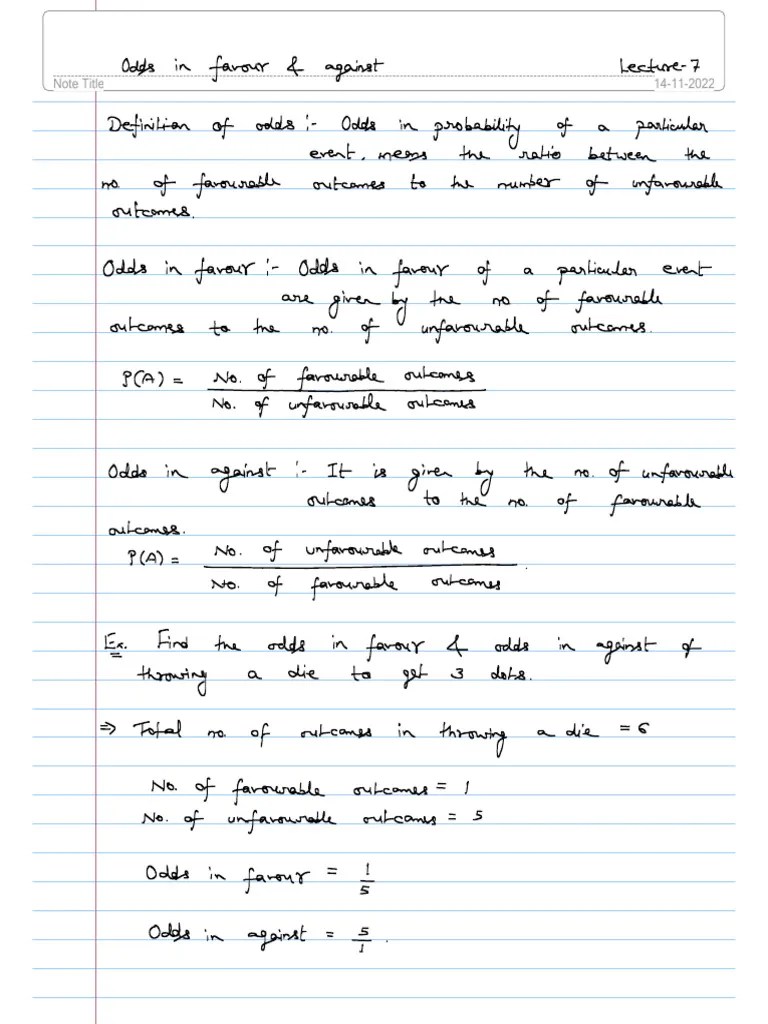 Odds in favour & against Lecture-7
Note Title 14-11-2022
Definition of odds :- Odds in probability of a particular
event, means the ratio between the
no. of favourable outcomes to the number of unfavourable
outcomes.
Odds in favour :- Odds in favour of a particular event
are given by the no of favourable
outcomes to the no. of unfavourable outcomes.
P(A) = No. of favourable outcomes
No. of unfavourable outcomes
Odds in against :- It is given by the no. of unfavourable
outcomes to the no. of favourable
outcomes.
P(A) = No. of unfavourable outcomes
No. of favourable outcomes.
Ex. Find the odds in favour & odds in against of
throwing a die to get 3 dots.
⇒ Total no. of outcomes in throwing a die = 6
No. of favourable outcomes = 1
No. of unfavourable outcomes = 5
Odds in favour = 1/5
Odds in against = 5/1.